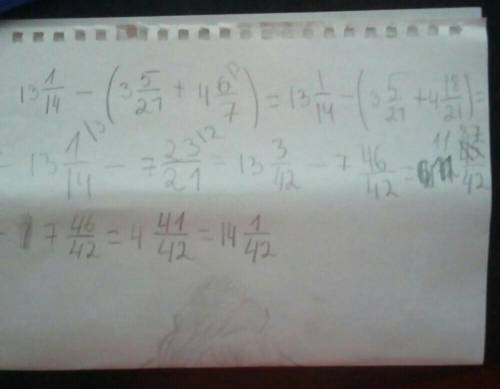 13 1/14 - (3 5/21 + 4 6/7 ³) = 13 1/14 - (3 5/21 + 4 18/21) =
- 13 1/14 ³ - 7 23/21 ² = 13 3/42 - 7 46/42 =
- 7 46/42 = 4 41/42 = 14 1/42